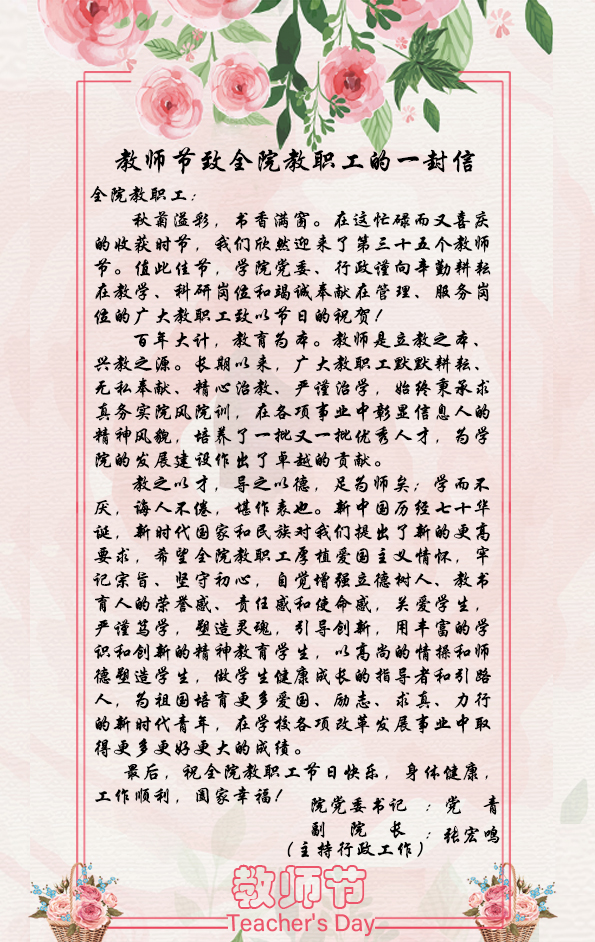 教师节致全院教职工的一封信
全院教职工：
秋菊溢彩，书香满窗。在这忙碌而又喜庆
的收获时节，我们欣然迎来了第三十五个教师
节。值此佳节，学院党委、行政谨向辛勤耕耘
在教学、科研岗位和竭诚奉献在管理、服务岗
位的广大教职工致以节日的祝贺！
百年大计，教育为本。教师是立教之本、
兴教之源。长期以来，广大教职工默默耕耘、
无私奉献、精心治教、严谨治学，始终秉承求
真务实院风院训，在各项事业中彰显信息人的
精神风貌，培养了一批又一批优秀人才，为学
院的发展建设作出了卓越的贡献。
教之以才，导之以德，足为师矣；学而不
厌，诲人不倦，堪作表也。新中国历经七十华
诞，新时代国家和民族对我们提出了新的更高
要求，希望全院教职工厚植爱国主义情怀，牢
记宗旨、坚守初心，自觉增强立德树人、教书
育人的荣誉感、责任感和使命感，关爱学生，
严谨笃学，塑造灵魂，引导创新，用丰富的学
识和创新的精神教育学生，以高尚的情操和师
德塑造学生，做学生健康成长的指导者和引路
人，为祖国培育更多爱国、励志、求真、力行
的新时代青年，在学校各项改革发展事业中取
得更多更好更大的成绩。
最后，祝全院教职工节日快乐，身体健康，
工作顺利，阖家幸福！
院党委书记：党青
副院长：张宏鸣
（主持行政工作）
教师节
Teacher's Day